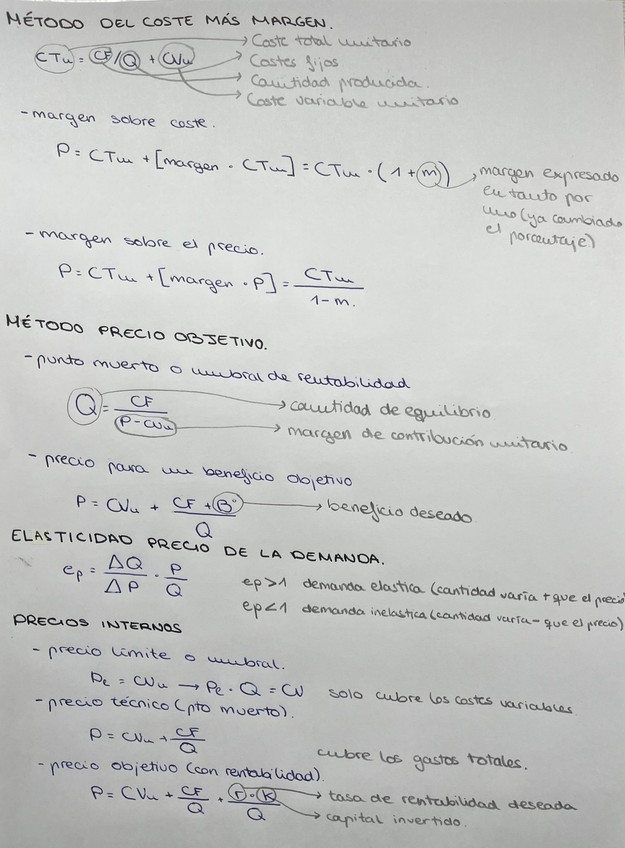 MÉTODO DEL COSTE MÁS MARGEN.
CTu = CF/Q + CVu
Coste total unitario
Costes fijos
Cantidad producida.
Coste variable unitario
- margen sobre coste.
P = CTu + [margen · CTu] = CTu · (1 + m)
margen expresado
en tanto por
uno (ya cambiado
el porcentaje)
- margen sobre el precio.
P = CTu + [margen · P] = CTu / 1 - m.
MÉTODO PRECIO OBJETIVO.
- punto muerto o umbral de rentabilidad
Q = CF / P - CVu
cantidad de equilibrio
margen de contribución unitario.
- precio para un beneficio objetivo
P = CVu + CF + Bº / Q
beneficio deseado
ELASTICIDAD PRECIO DE LA DEMANDA.
ep = ΔQ / ΔP · P / Q
ep > 1 demanda elastica (cantidad varía + que el precio)
ep < 1 demanda inelastica (cantidad varía - que el precio)
PRECIOS INTERNOS
- precio límite o umbral.
Pe = CVu → Pe · Q = CV solo cubre los costes variables
- precio técnico (pto muerto).
P = CVu + CF / Q
cubre los gastos totales.
- precio objetivo (con rentabilidad).
P = CVu + CF / Q + r · k / Q
tasa de rentabilidad deseada
capital invertido.